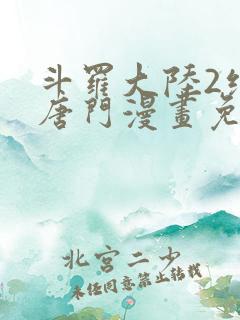 斗羅大陸2
唐門漫畫免
北宮二少
未经同意禁止转载